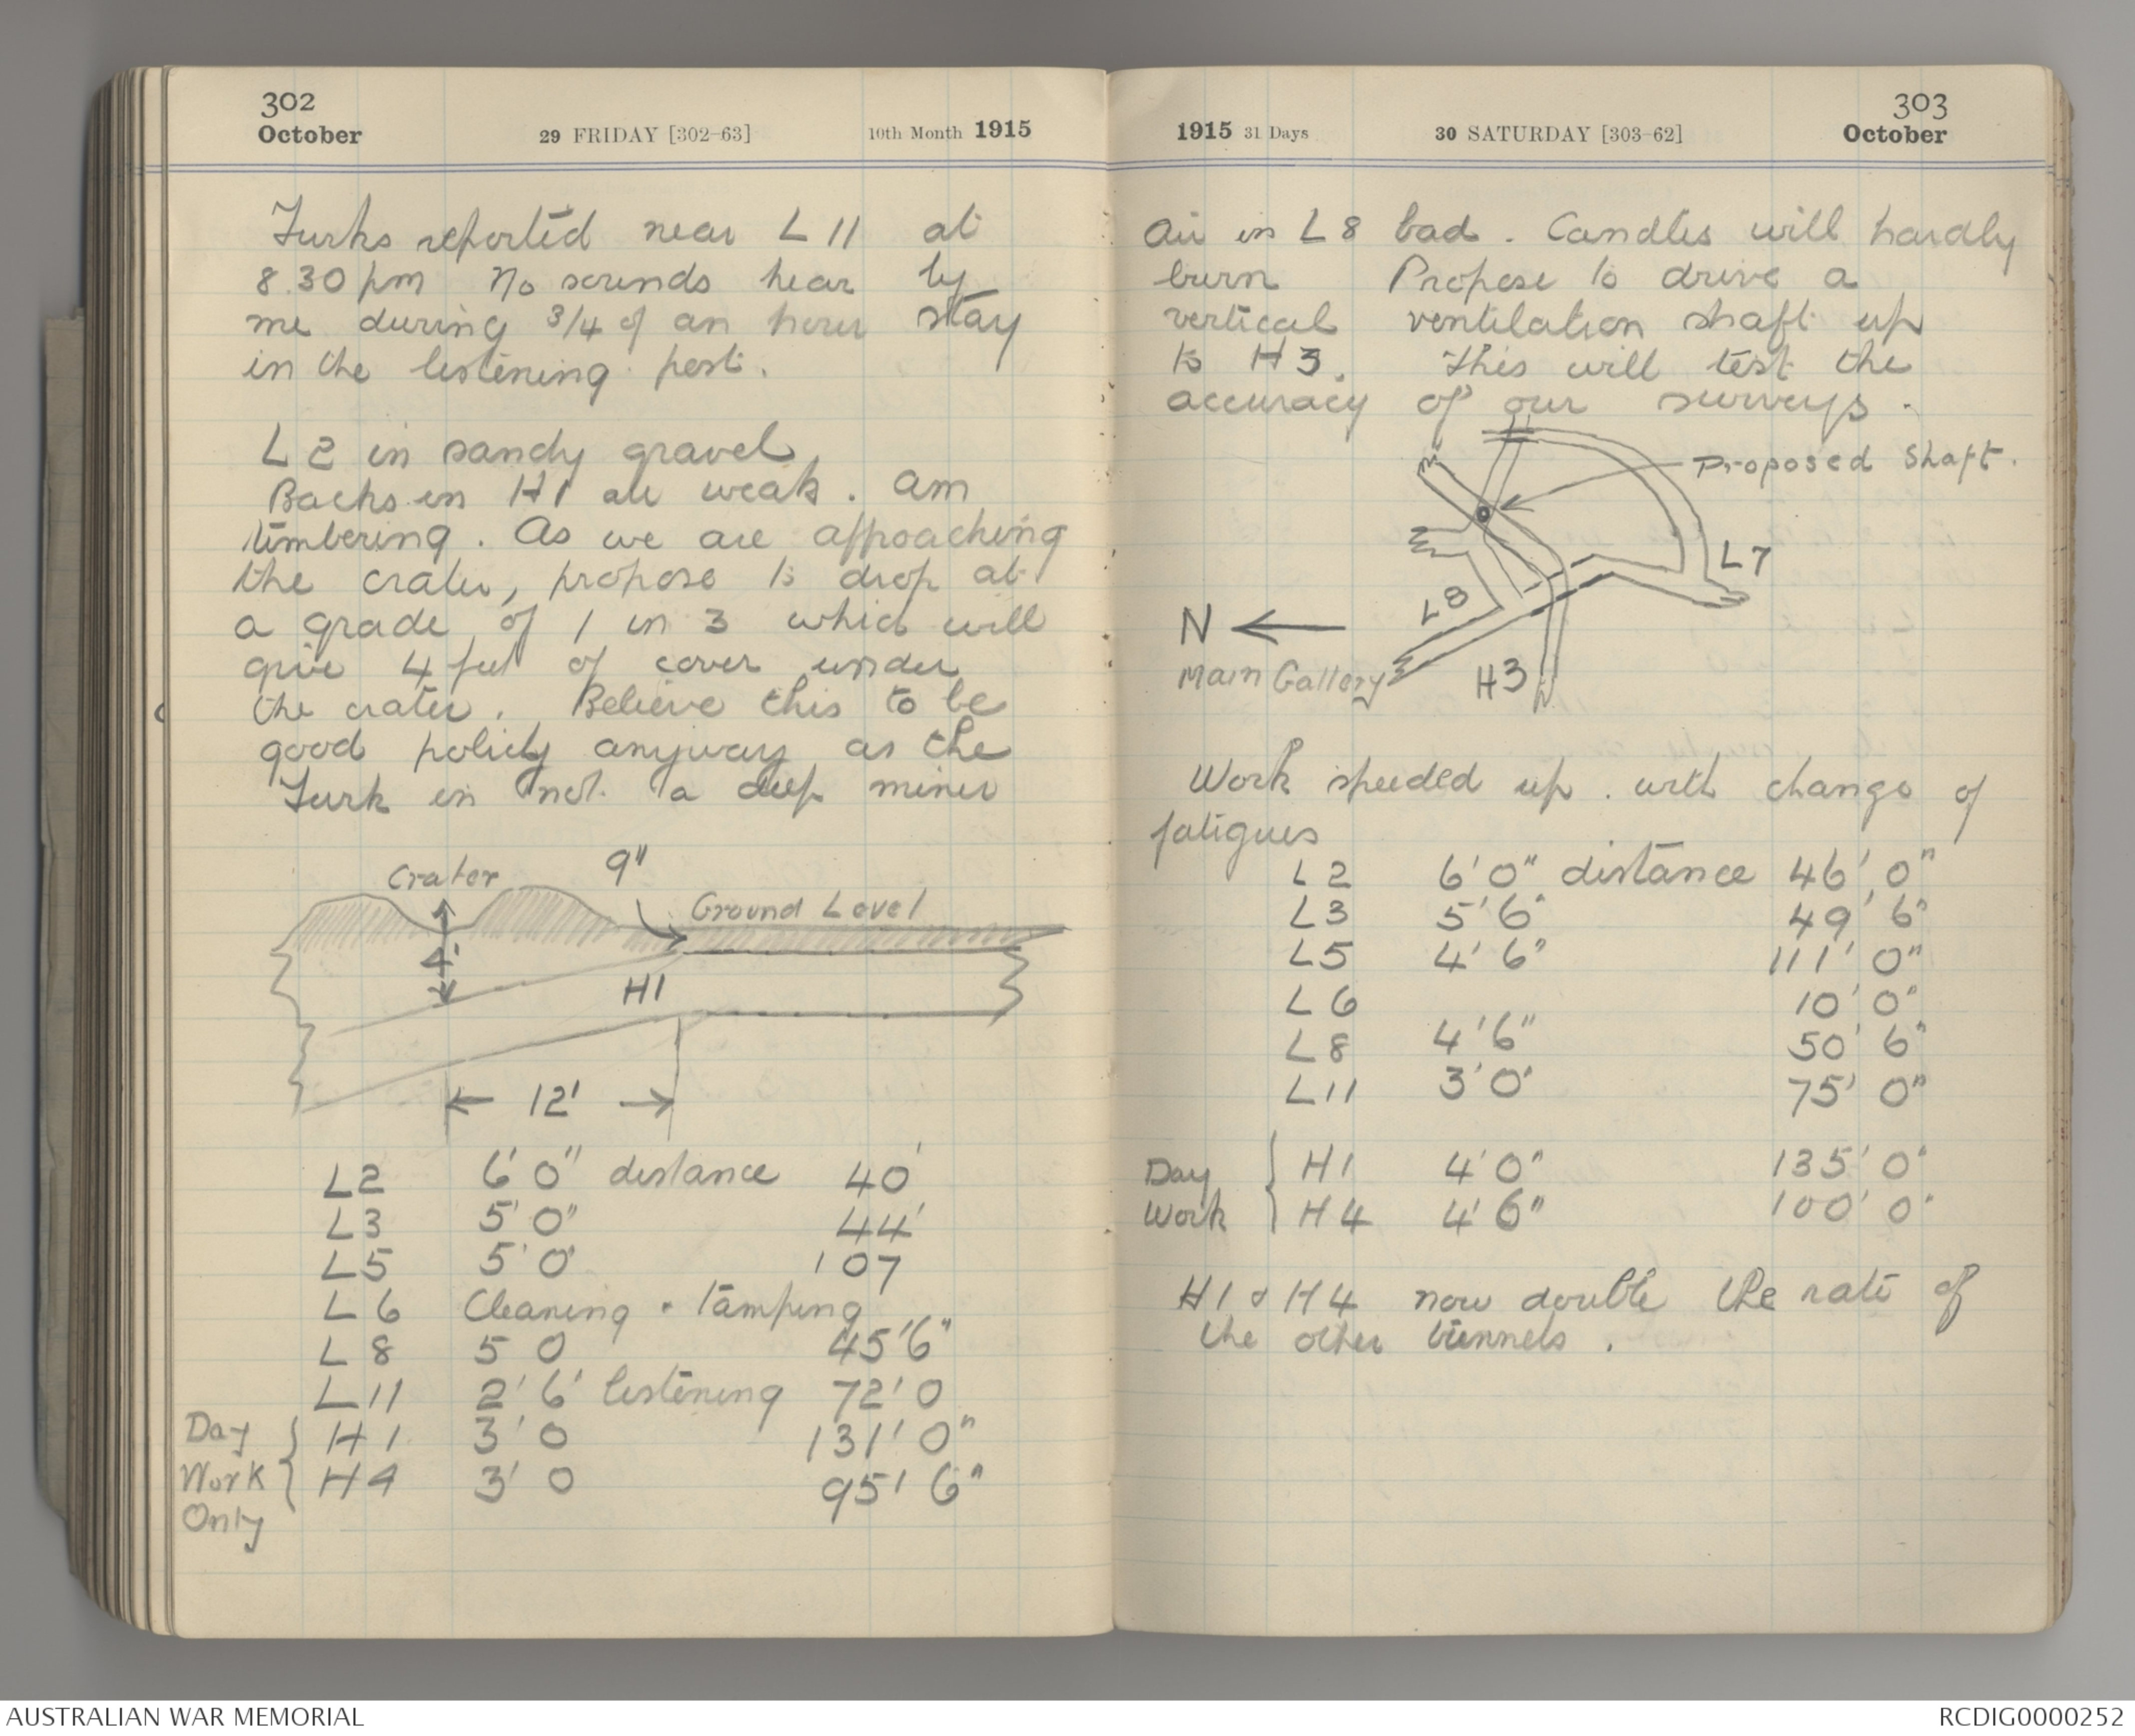 302
October 29 FRIDAY [302-63] 10th Month 1915
Turks reported near L 11 at
8.30 pm No sounds hear by
me during 3/4 of an hour stay
in the listening post.
L 2 in sandy gravel
Backs in H1 are weak. Am
timbering. As we are appoaching
the crater, propose to drop at
a grade of 1 in 3 which will
give 4 feet of cover under
the crater. Believe this to be
good policy anyway as the
Turk is not a deep miner
Crater 9"
Ground Level
4'
H1
12'
L2 6' 0" distance 40'
L3 5' 0" 44'
L5 5' 0' 107
L6 Cleaning & tamping
L8 5 0 45' 6"
L11 2' 6' listening 72' 0
Day H1 3' 0 131' 0"
Work H4 3' 0 95' 6"
Only
303
1915 31 Days 30 SATURDAY [303-62] October
Air in L8 bad. Candles will hardly
burn Propose to drive a
vertical ventilation shaft up
to H3. This will test the
accuracy of our surveys.
Proposed Shaft.
L7
L8
N
Main Gallery H3
Work speeded up. with change of
fatigues
L2 6' 0" distance 46' 0"
L3 5' 6" 49' 6"
L5 4' 6" 111' 0"
L6 10' 0"
L8 4' 6" 50' 6"
L11 3' 0' 75' 0"
Day H1 4' 0" 135' 0'
Work H4 4' 6" 100' 0'
H1 & H4 now double the rate of
the other tunnels.
AUSTRALIAN WAR MEMORIAL RCDIG0000252